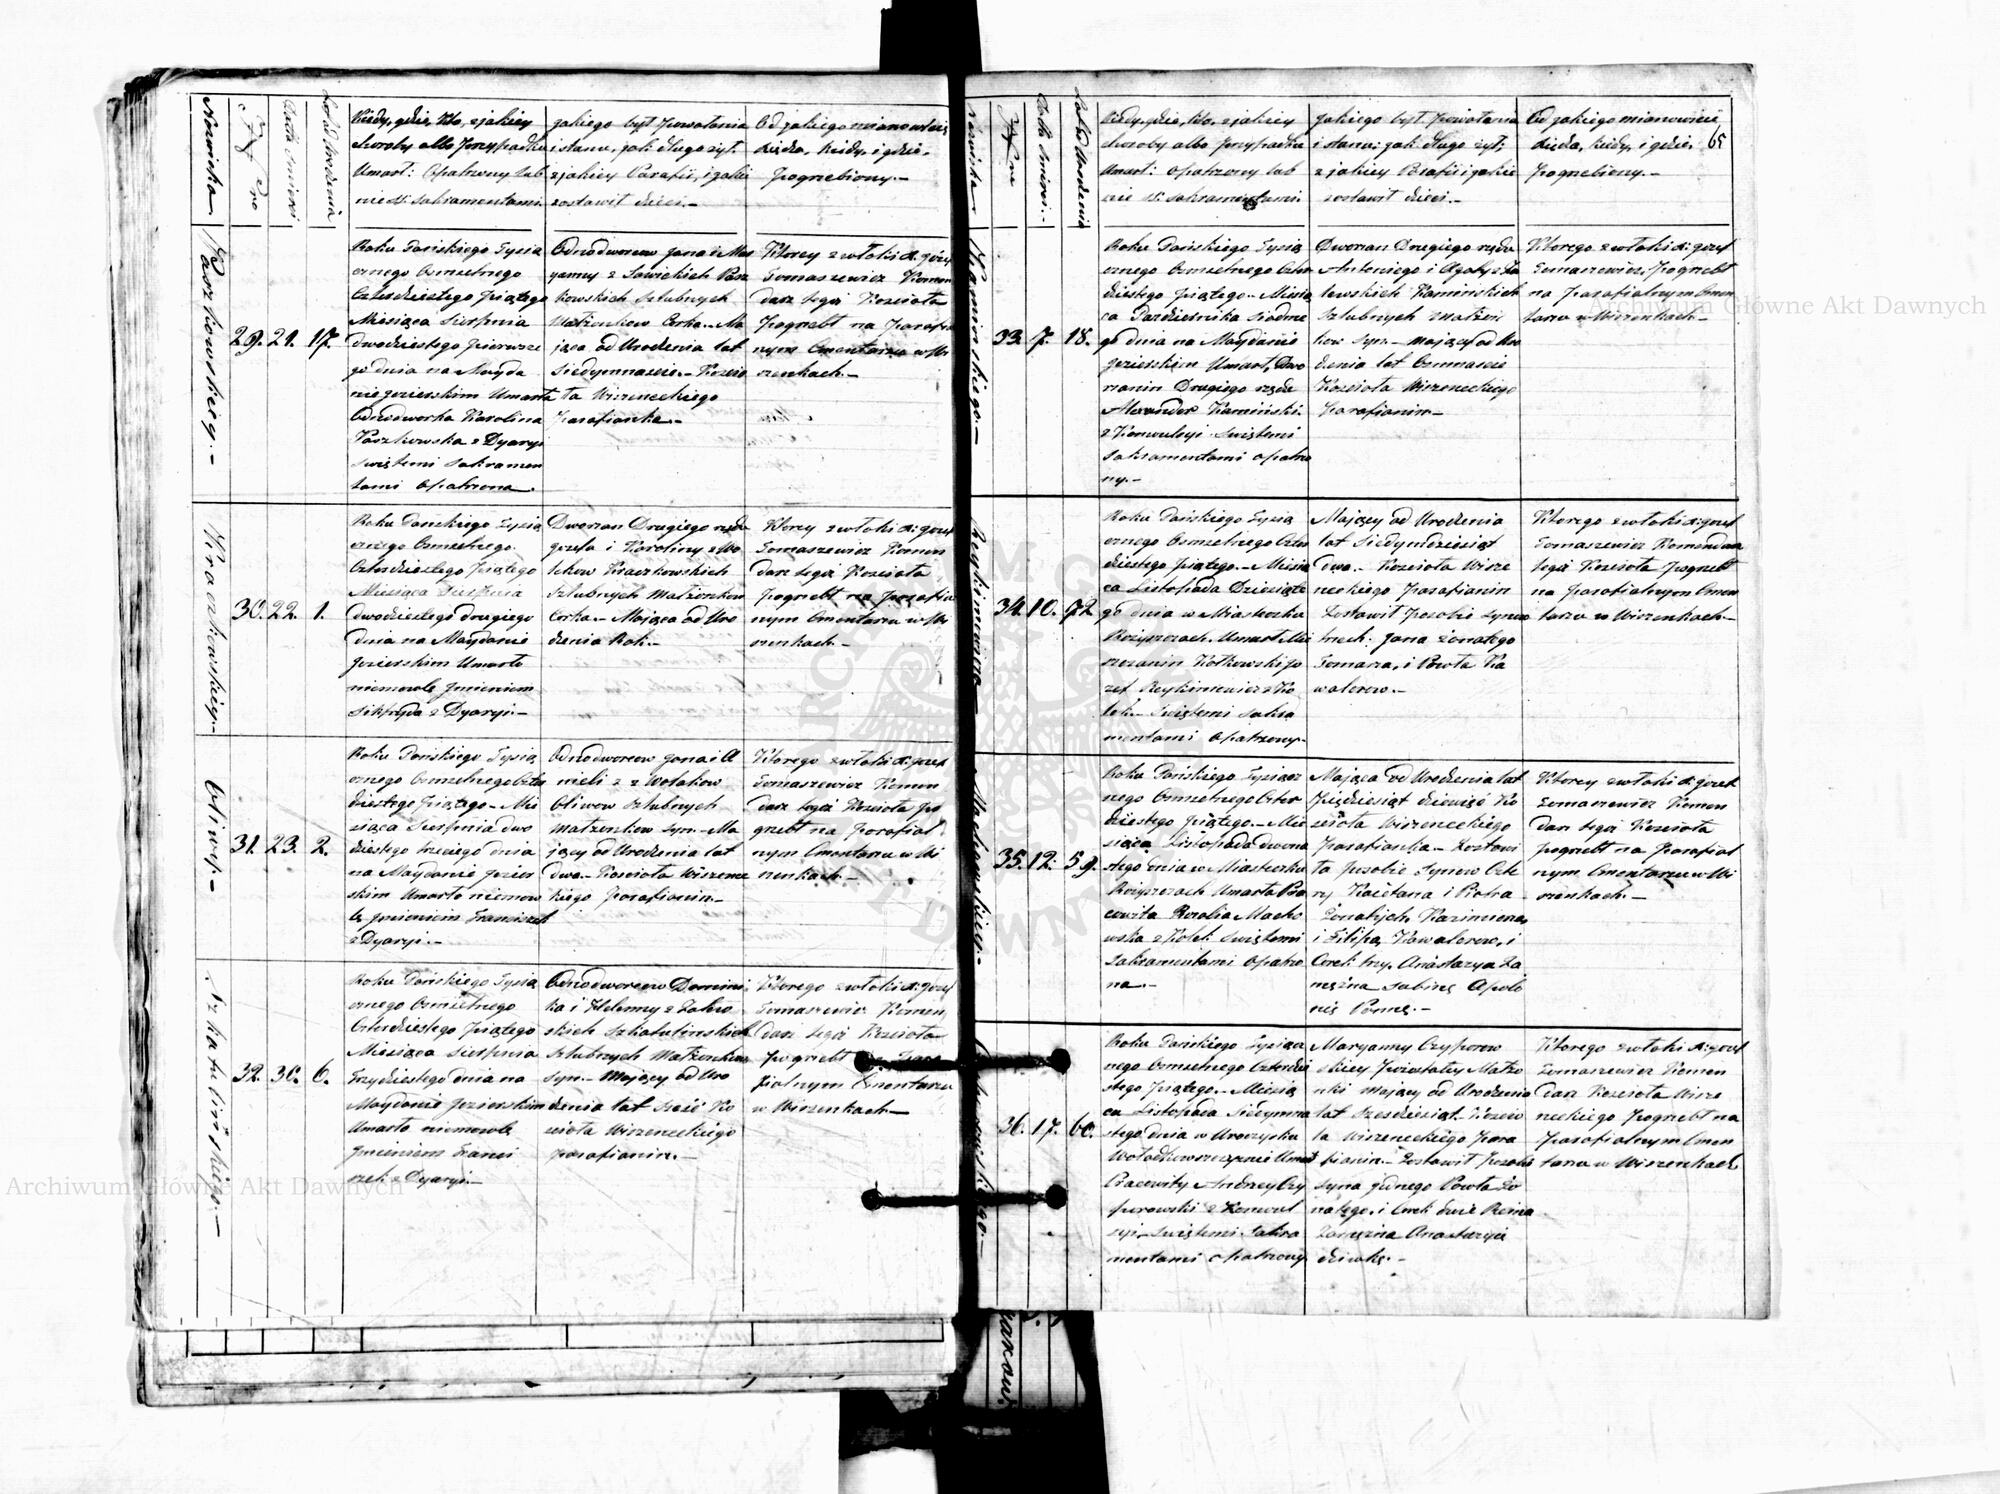 Nazwiska
No
Data śmierci
Lata od Urodzenia
Kiedy, gdzie, kto, z jakiey
choroby albo przypadku
Umarł: Opatrzony lub
nie SS: Sakramentami
jakiego był powołania
i stanu, jak długo żył.
z jakiey Parafii, i jakie
zostawił dzieci.-
Od jakiego mianowicie
Księdza, kiedy, i gdzie.
pogrzebiony.-
Paszkowskiey.-
29.
21.
17.
Roku Pańskiego Tysią
cznego Osmsetnego
Czterdziestego piątego
Miesiąca Sierpnia
dwudziestego pierwsze
go dnia na Mayda
nie jezierskim Umarła
Odnodworka Karolina
Paszkowska z Dyaryi
świętemi Sakramen
tami Opatrzona.
Odnodworcow Jana i Ma
ryanny z Sawickich Pasz
kowskich Szlubnych
Małżonkow Corka.- Ma
jąca od Urodzenia lat
Siedymnaście.- Kościo
ła Wiszeneckiego
parafianka.-
Ktorey zwłoki X: Jozef
Tomaszewicz Komen
darz tegoż Kościoła
pogrzebł na parafia
nym Cmentarzu w Wi
szenkach.-
Kraczkowskiey.-
30.
22.
1.
Roku Pańskiego Tysią
cznego Osmsetnego
Czterdziestego piątego
Miesiąca Sierpnia
dwudziestego drugiego
dnia na Maydanie
jezierskim Umarło
niemowlę Jmieniem
z Dyaryi.-
Dworzan Drugiego rzędu
Jozefa i Karoliny z Wo
łkow Kraczkowskich
Szlubnych Małżonkow
Corka.- Mająca od Uro
dzenia Rok.-
Ktorey zwłoki X: Jozef
Tomaszewicz Komen
darz tegoż Kościoła
pogrzebł na parafia
nym Cmentarzu w Wi
szenkach.-
Oliwy.-
31.
23.
2.
Roku Pańskiego Tysią
cznego Osmsetnego Czter
dziestego piątego.- Mie
siąca Sierpnia dwu
dziestego trzeciego dnia
na Maydanie jezier
skim Umarło niemow
lę Jmieniem Franciszek
z Dyaryi.-
Odnodworcow Jana i A
nieli z z Wołakow
Oliwow Szlubnych
Małżonkow Syn.- Ma
jący od Urodzenia lat
dwa.- Kościoła Wiszenec
kiego parafianin.-
Ktorego zwłoki X: Jozef
Tomaszewicz Komen
darz tegoż Kościoła po
grzebł na parafial
nym Cmentarzu w Wi
szenkach.-
Szkatulińskiego.-
32.
30.
6.
Roku Pańskiego Tysią
cznego Osmsetnego
Czterdziestego piątego
Miesiąca Sierpnia
trzydziestego dnia na
Maydanie Jezierskim
Umarło niemowlę
Jmieniem Franci
szek z Dyaryi.-
Odnodworcow Domini
ka i Helenny z
skich Szkatulinskich
Szlubnych Małżonkow
Syn.- Mający od Uro
dzenia lat sześć Ko
ścioła Wiszeneckiego
parafianin.-
Ktorego zwłoki X: Jozef
Tomaszewicz Komen
darz tegoż Kościoła
pogrzebł na Para
fialnym Cmentarzu
w Wiszenkach.-
65
Nazwiska
No
Data śmierci.-
Lata od Urodzenia
Kiedy, gdzie, kto, z jakiey
choroby albo przypadku
Umarł: Opatrzony lub
nie SS: Sakramentami
jakiego był powołania
i stanu: jak długo żył;
z jakiey Parafii i jakie
zostawił dzieci.-
Od jakiego mianowicie
Księdza, kiedy, i gdzie.
pogrzebiony.-
Kaminskiego.-
33.
7.
18.
Roku Pańskiego Tysią
cznego Osmsetnego Czter
dziestego piątego.- Miesią
ca Pazdziernika siodme
go dnia na Maydanie
jezierskim Umarł, Dwo
rzanin Drugiego rzędu
Alexander Kamiński
z Konwulsyi świętemi
Sakramentami opatrzo
ny.-
Dworzan Drugiego rzędu
Antoniego i Agaty z Za
lewskich Kaminskich
Szlubnych małżon
kow Syn.- Mający od Uro
dzenia lat Osmnaście
Kościoła Wiszeneckiego
parafianin.-
Ktorego zwłoki X: Jozef
Tomaszewicz, pogrzebł
na parafialnym Cmen
tarzu w Wiszenkach.-
34.
10.
72
Roku Pańskiego Tysią
cznego Osmsetnego Czter
dziestego piątego.- Miesią
ca Listopada Dziesiąte
go dnia w Miasteczku
Rożyszczach Umarł Mie
szczanin Kołkowski Jo
zef Reykiniewicz z Ko
lek świętemi Sakra
mentami Opatrzony.-
Mający od Urodzenia
lat Siedymdziesiąt
dwa.- Kościoła Wisze
neckiego Parafianin
Zostawił po sobie Synow
trzech: Jana żonatego
Tomasza, i Pawła Ka
walerow.-
Ktorego zwłoki X: Jozef
Tomaszewicz Komendarz
tegoż Kościoła pogrzebł
na parafialnym Cmen
tarzu w Wiszenkach.-
35.
12.
59.
Roku Pańskiego Tysiącz
nego Osmsetnego Czter
dziestego piątego.- Mie
siąca Listopada dwuna
stego dnia w Miasteczku
Rożyszczach Umarła Pra
cowita Rozalia Macho
wska z Kolek świętemi
Sakramentami Opatrzo
na.-
Mająca od Urodzenia lat
Pięćdziesiąt dziewięć Ko
ścioła Wiszeneckiego
Parafianka.- Zostawi
ła po sobie Synow Czte
ry Kaietana i Piotra
Żonatych, Kazimierza
i Filipa, Kawalerow, i
Corek trzy. Anastazya Za
mężna Sabinę Apolo
nię Pannę.-
Ktorey zwłoki X: Jozef
Tomaszewicz Komen
darz tegoż Kościoła
pogrzebł na Parafial
nym Cmentarzu w Wi
szenkach.-
36.
17.
60.
Roku Pańskiego Tysiącz
nego Osmsetnego Czterdzie
stego piątego.- Miesią
ca Listopada Siedymna
stego dnia w Uroczysku
Umarł
Pracowity Andrzey Czy
porowski z Konwul
syi świętemi Sakra
mentami opatrzony
Maryanny Czyporow
skiey Pozostałey Małżo
nki mający od Urodzenia
lat Sześdziesiąt.- Kościo
ła Wiszeneckiego Para
fianin.- Zostawił po sobie
syna jednego Pawła Żo
natego, i Corek dwie
Zamężna Anastazyi
dziewkę.-
Ktorego zwłoki X: Jozef
Tomaszewicz Komen
darz Kościoła Wisze
neckiego Pogrzebł na
Parafialnym Cmen
tarzu w Wiszenkach
Archiwum Główne Akt Dawnych
Archiwum Główne Akt Dawnych